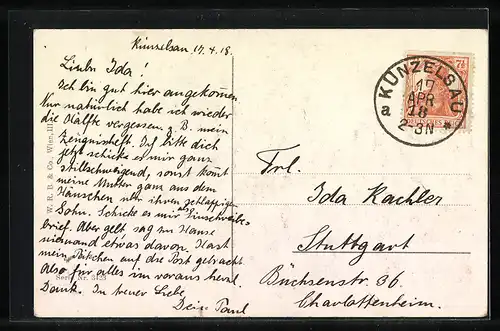 Künzelsau 17.4.18.
Liebe Ida!
Ich bin gut hier angekommen.
Nur natürlich habe ich wieder
die Hälfte vergessen z. B. mein
Zeugnisheft. Ich bitte dich
jetzt schicke es mir ganz
stillschweigend, sonst kommt
meine Mutter ganz aus dem
Häuschen über ihren schlappigen
Sohn. Schicke es mir als Einschreibe-
brief. Aber gelt sag zu Hause
niemand etwas davon. Hast
mein Päkchen auf die Post gebracht
Also für alles im voraus herzl.
Dank. In treuer Liebe
Dein Paul
W. R. B. & Co., Wien, III.
Serie Nr.
7½
KÜNZELSAU
17
APR
18
2-3N
a *
Frl.
Ida Kachler
Stuttgart
Büchsenstr. 36.
Charlottenheim.